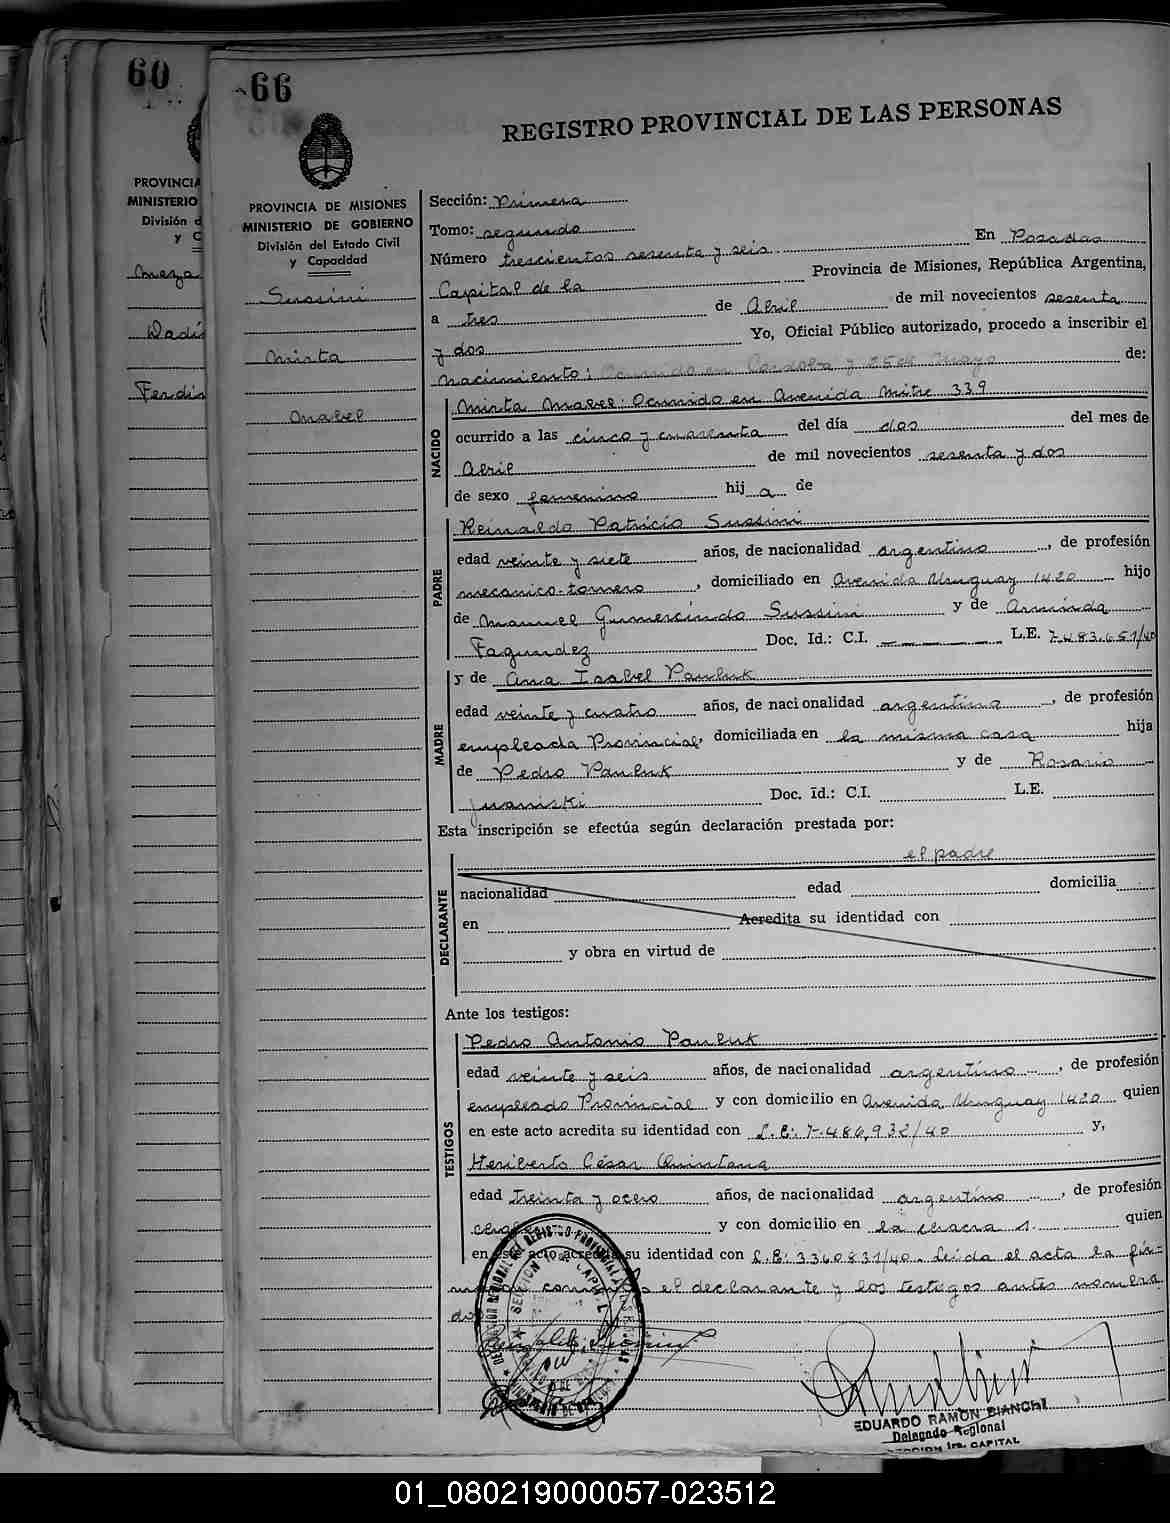 60
66
REGISTRO PROVINCIAL DE LAS PERSONAS
PROVINCIA
MINISTERIO
División d
y C
Meza
Ferdin
PROVINCIA DE MISIONES
MINISTERIO DE GOBIERNO
División del Estado Civil
y Capacidad
Sussini
Mirta
Mabel
Sección: Primera
Tomo: segundo
Número trescientos sesenta y seis En Posadas
Capital de la Provincia de Misiones, República Argentina,
a tres de Abril de mil novecientos sesenta
y dos Yo, Oficial Público autorizado, procedo a inscribir el
nacimiento: Ocurrido en Cordoba y 25 de Mayo de:
NACIDO
Mirta Mabel: Ocurrido en Avenida Mitre 339
ocurrido a las cinco y cuarenta del día dos del mes de
Abril de mil novecientos sesenta y dos
de sexo femenino hij a de
PADRE
Reinaldo Patricio Sussini
edad veinte y siete años, de nacionalidad argentino, de profesión
mecanico-tornero, domiciliado en Avenida Uruguay 1420 hijo
de Manuel Gumercindo Sussini y de Arminda
Fagundez Doc. Id.: C.I. L.E. 7.483.651/40
MADRE
y de Ana Isabel Pauluk
edad veinte y cuatro años, de nacionalidad argentina, de profesión
empleada Provincial, domiciliada en la misma casa hija
de Pedro Pauluk y de Rosario
Juaniski Doc. Id.: C.I. L.E.
Esta inscripción se efectúa según declaración prestada por:
DECLARANTE
el padre
nacionalidad edad domicilia
en Acredita su identidad con
y obra en virtud de
Ante los testigos:
TESTIGOS
Pedro Antonio Pauluk
edad veinte y seis años, de nacionalidad argentino, de profesión
empleado Provincial y con domicilio en Avenida Uruguay 1420 quien
en este acto acredita su identidad con L.E: 7.486,932/40 y,
Heriberto César Quintana
edad Treinta y ocho años, de nacionalidad argentino, de profesión
chofer y con domicilio en la chacra 1. quien
en este acto acredita su identidad con L.E: 3360831/40. Leida el acta la fir-
man conmigo el declarante y los testigos antes nombra
dos
EDUARDO RAMON BIANCHI
Delegado Regional
SECCION 1ra. CAPITAL
01_080219000057-023512